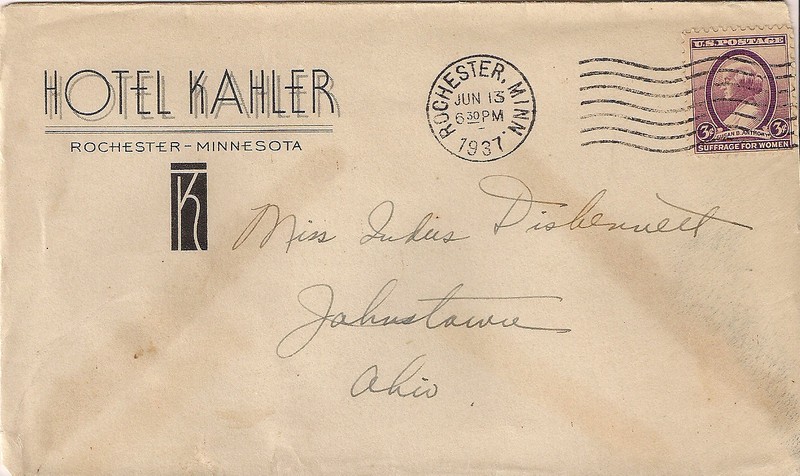 HOTEL KAHLER
ROCHESTER-MINNESOTA
K
ROCHESTER, MINN.
JUN 13
6 30 PM
1937
U.S. POSTAGE
3¢ SUSAN B. ANTHONY 3¢
SUFFRAGE FOR WOMEN
Miss Disbennett
Johnstown
Ohio